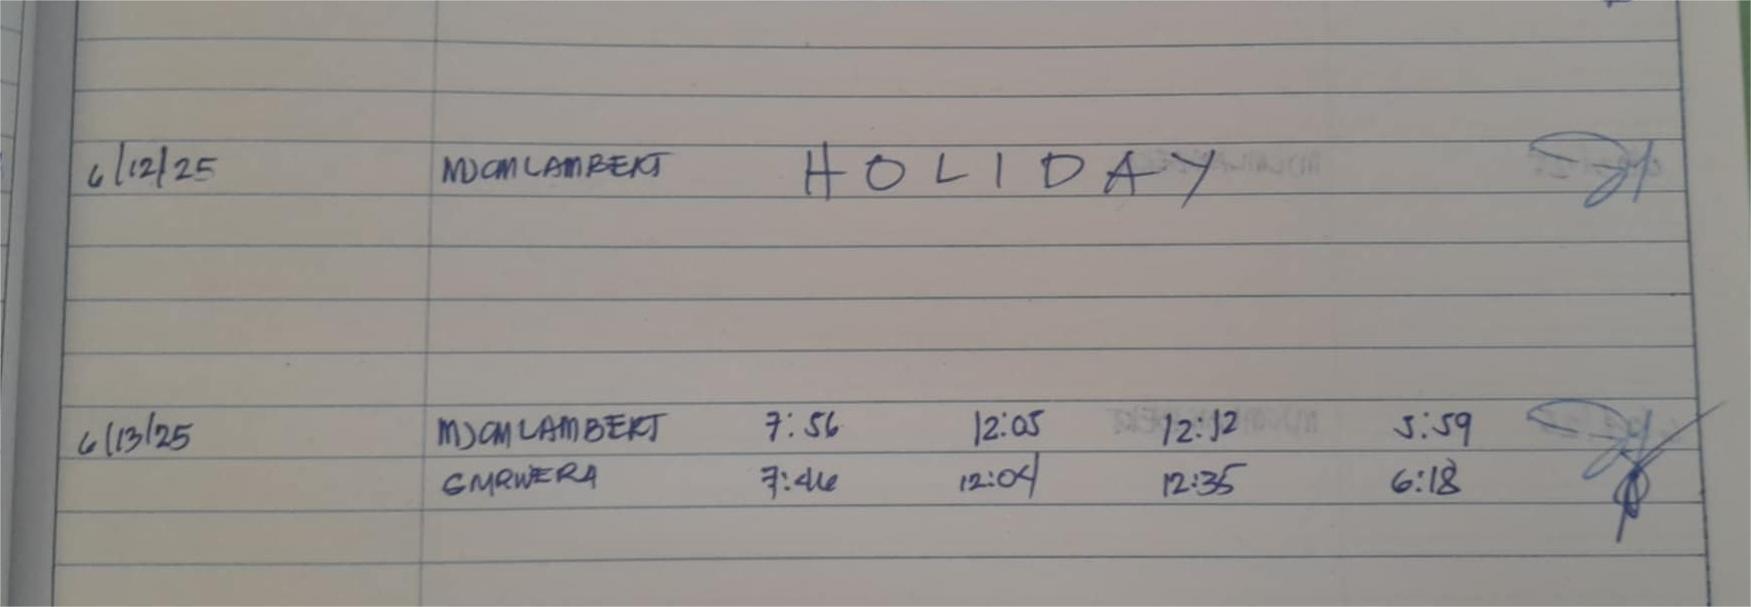 6/12/25 MJCMLAMBERT HOLIDAY
6/13/25 MJCMLAMBERT 7:56 12:05 12:12 5:59
7:46 12:04 12:35 6:18